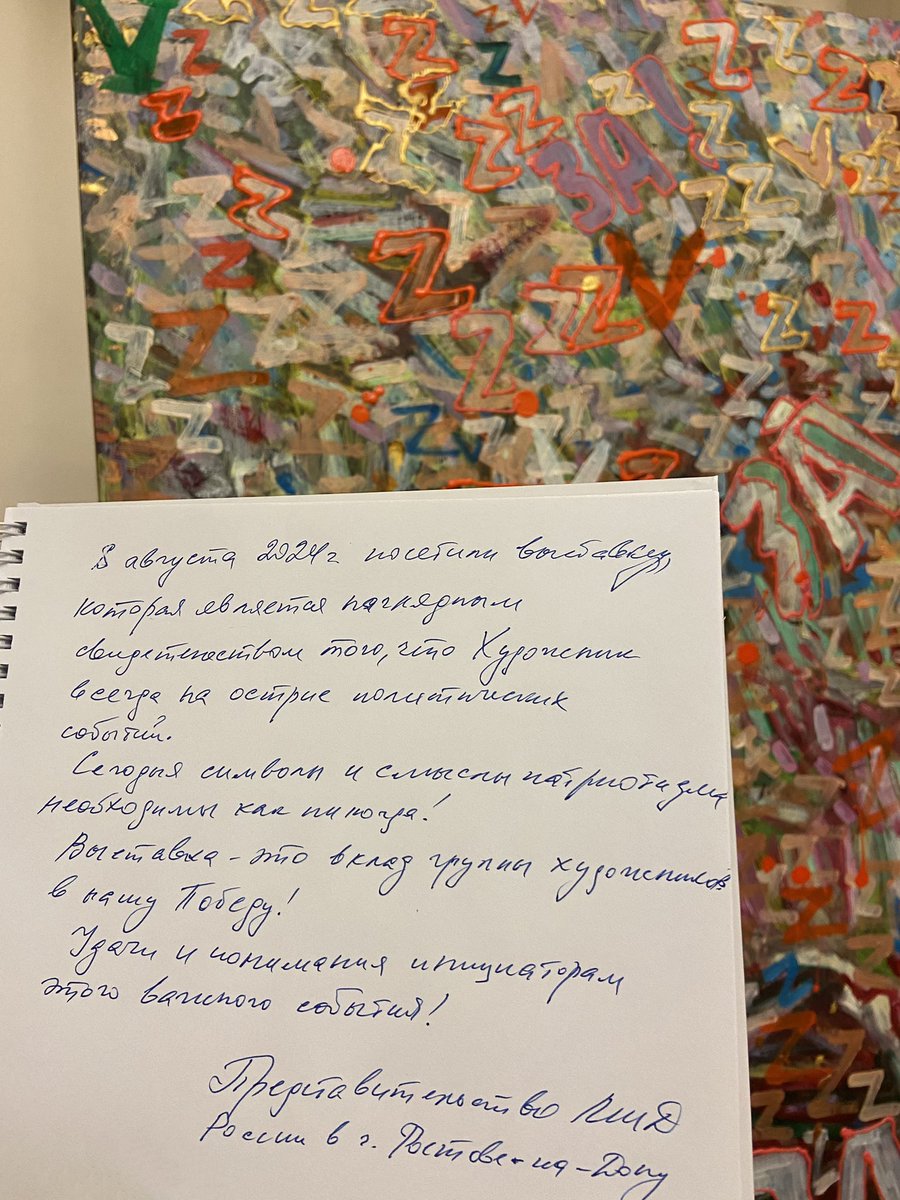 V
Z
ЗА!
Z
V
ZZ
ЗА
8 августа 2024г посетили выставку,
которая является наглядным
свидетельством того, что Художник
всегда на острие политических
событий.
Сегодня символы и смыслы патриотизма
необходимы как никогда!
Выставка - это вклад группы художников
в нашу Победу!
Удачи и понимания инициаторам
этого важного события!
Представительство МИД
России в г. Ростове-на-Дону